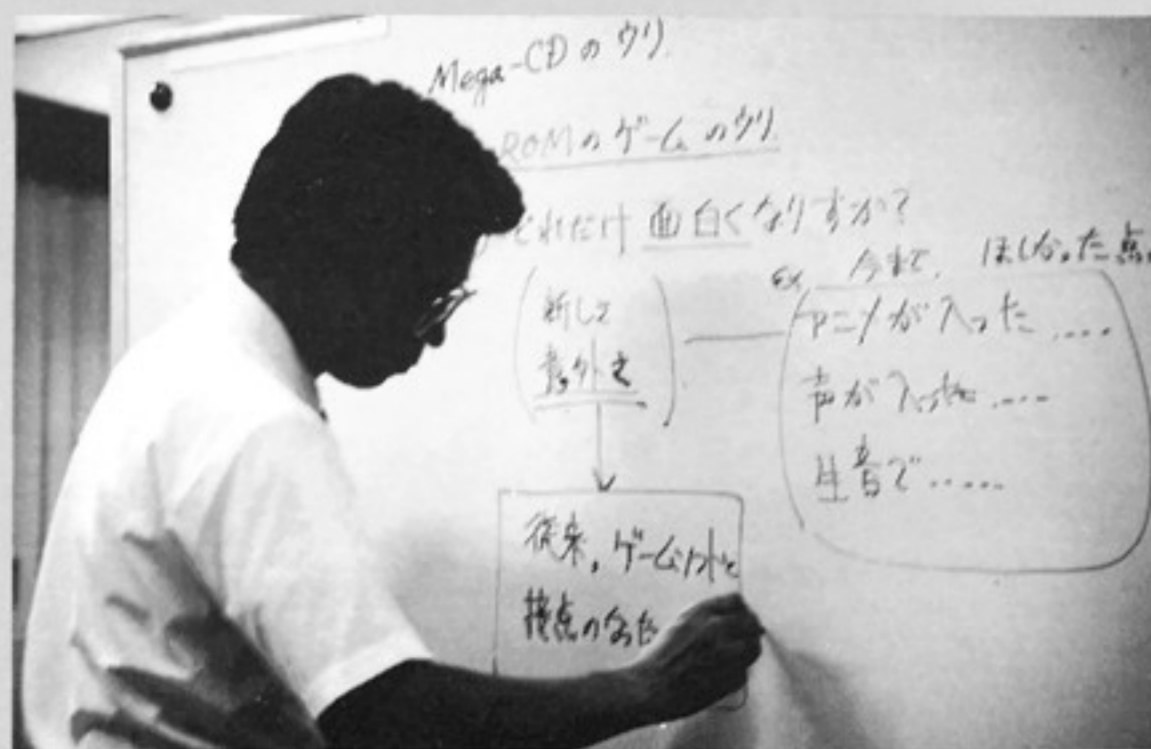 Mega-CDのウリ.
ROMのゲームのウリ.
どれだけ面白くなりますか?
ex. 今まで、ほしかった点
新しさ
意外さ
アニメが入った....
声が入った....
生音で.....
従来,ゲームソフトと
接点のなかった